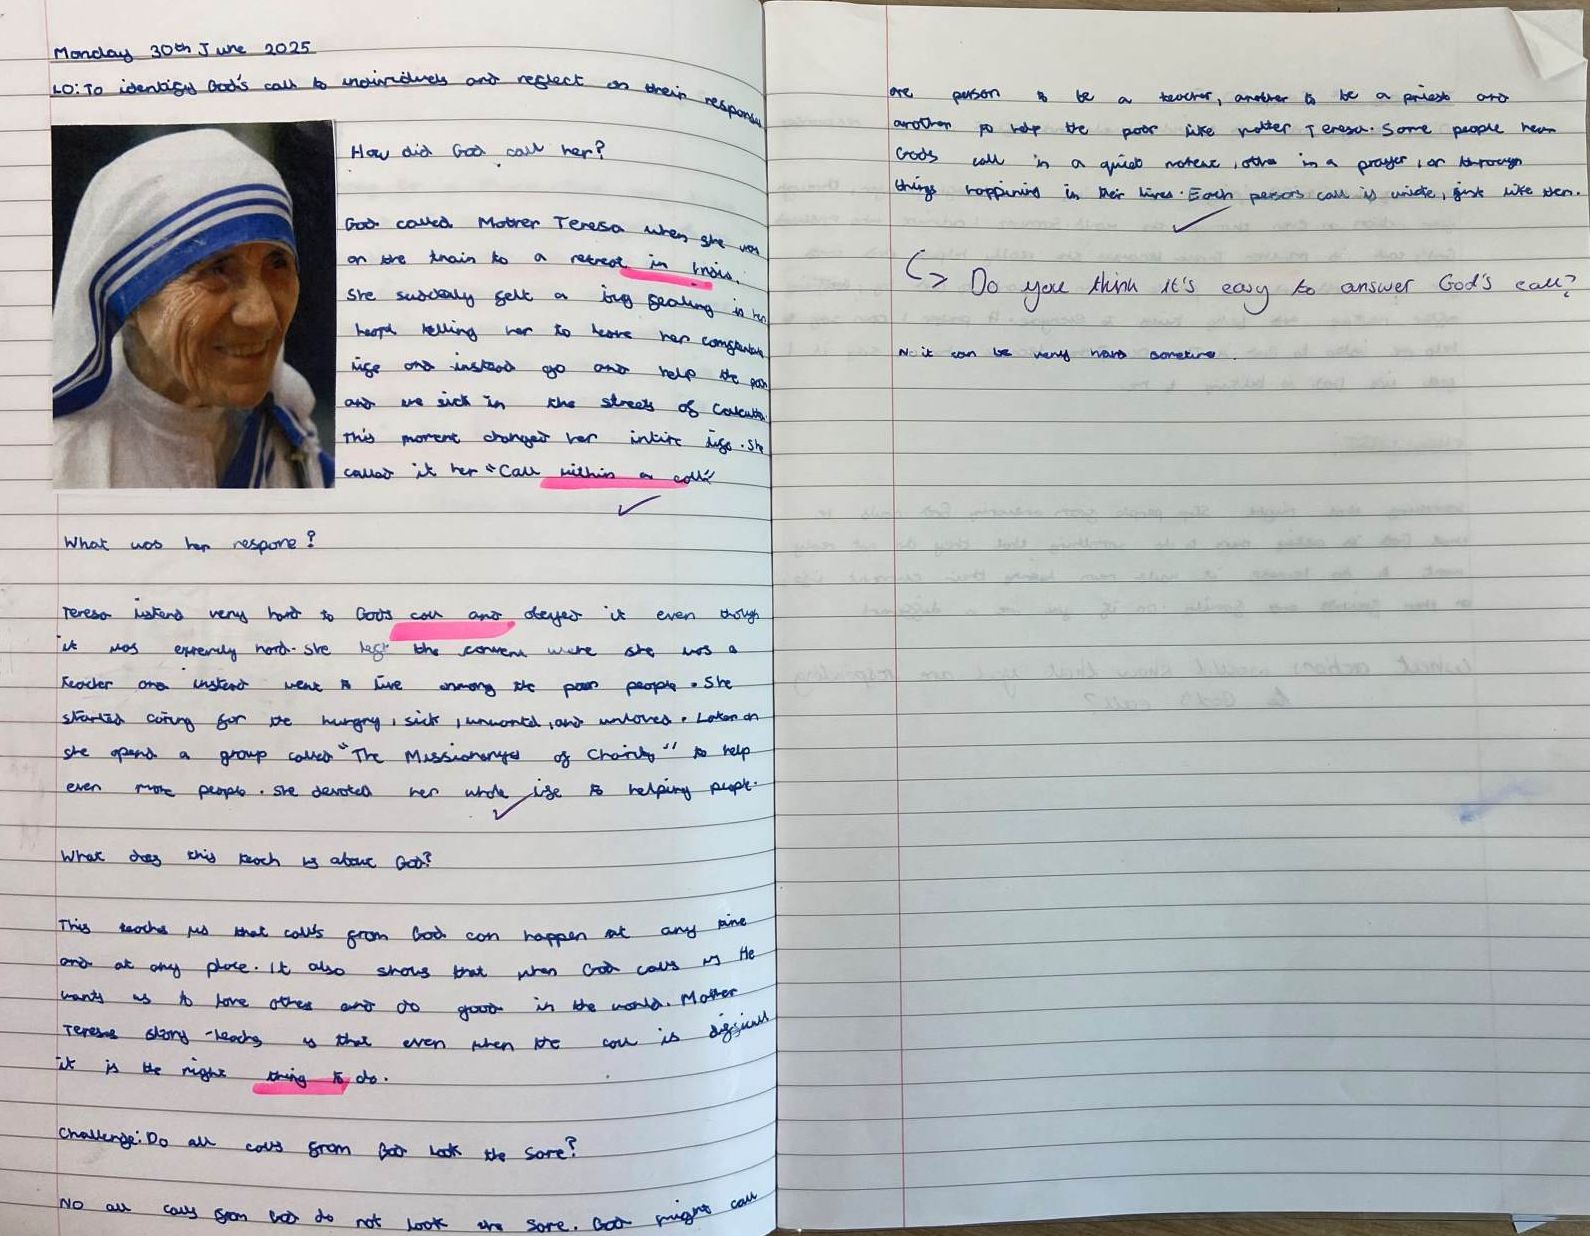 Monday 30th June 2025
LO: To identify God's call to individuels and reflect on their response
How did God call her?
God called Mother Teresa when she was
on the train to a retreat in India.
She suddenly felt a big fealing in her
heart telling her to leave her comfortable
life and instead go and help the poor
and we sick in the streets of Calcutta.
This moment changed her intire life. She
called it her "Call within a call"
What was her respone?
Teresa listend very hard to Gods call and obeyed it even though
it was extremly hard. She left the convent were she was a
teacher and instead went to live among the poor people. She
started caring for the hungry, sick, unwantd, and unloved. Later on
she opend a group called "The Missionarys of Charity" to help
even more people. She devoted her whole life to helping peopl.
What does this teach us about God?
This teache us that calls from God can happen at any time
and at any place. It also shows that when God calls us He
wants us to love others and do good in the world. Mother
Teresas story teachs us that even when the call is difficult
it is the right thing to do.
Challenge: Do all calls from God look the same?
No all calls from God do not look the same. God might call
one person to be a teacher, another to be a priest and
another to help the poor like Mother Teresa. Some people hear
Gods call in a quiet moment, other in a prayer, or through
things happining in their lives. Each persons call is uniqe, just like them.
Do you think it's easy to answer God's call?
No it can be very hard sometime.